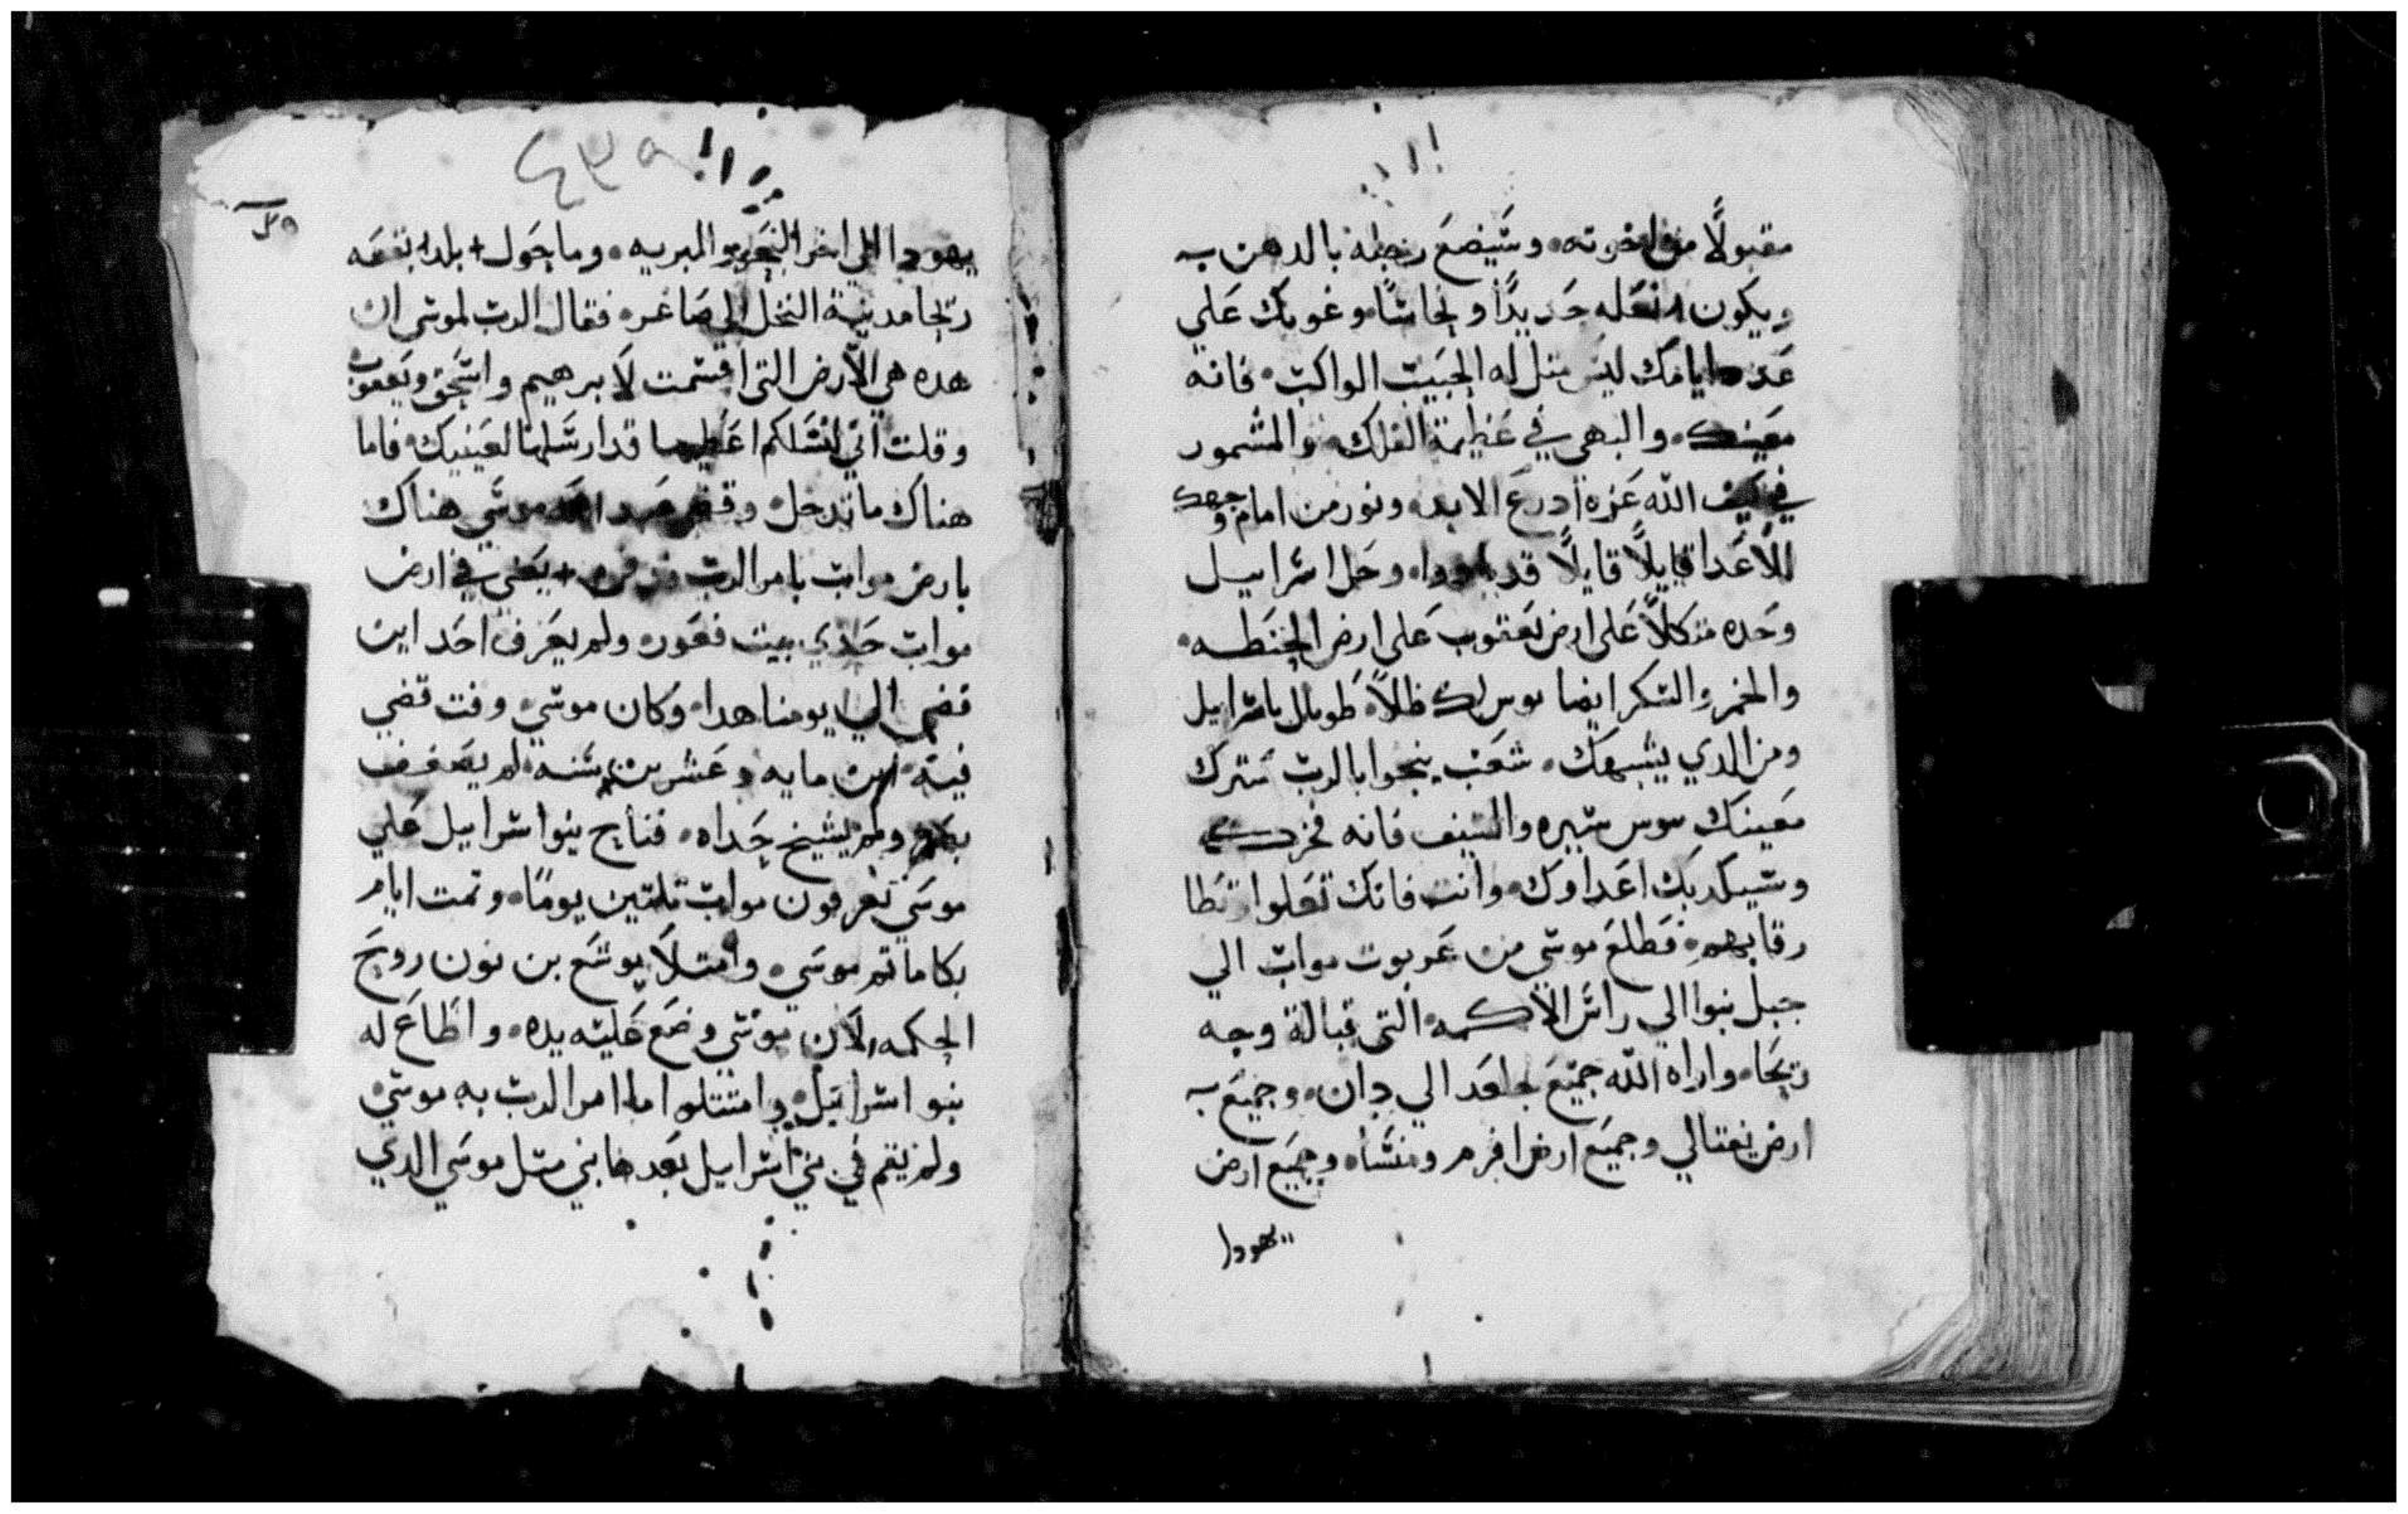 مقبولًا من اخوته، وسيضع رجله بالدهن
ويكون نعله حديدًا ونحاسًا وغوبك علي
عدد ايامك ليس متل اله الحبيب الراكب، فانه
معينك، والبهي في عظيمة الفلك، والمشمور
في الله عزة ادرع الابد، ونور من امام وجهك
الأعدا قايلًا قايلًا قد وحل اسراييل
وحده متكلًا علي ارض يعقوب علي ارض الحنطه،
والخمر والسكر ايضا لك ظالاً، طوباك ياسراييل
ومن الدي يشبهك، شعب ينجوا بالرب سترك
معينك ترس ستيره والسيف فانه فخرك
وسيكدبك اعداوك، وانت فانك تعلوا تطا
رقابهم، فطلع موسي من عربوت مواب الي
جبل نبوا الي راس الاكمه، التي قبالة وجه
ريحا، واراه الله جميع جلعد الي دان، وجميع
ارض نفتالي وجميع ارض افرم ومنسا، وجميع ارض
يهودا
٤٣٩
يهودا الي اخر البحر والبريه، وما حول بلد بقعه
ريحا مدينة النخل الي صاغر، فقال الرب لموسي ان
هده هي الارض التي اقسمت لابرهيم واسحق ويعقوب
وقلت اني لنسلكم اعطيها قد ارسلتها لعينيك، فاما
هناك ما تدخل، وقضي موسي هناك
بارض مواب بامر الرب يعني في ارض
مواب حدي بيت فعور، ولم يعرف احد اين
قضي الي يومنا هدا، وكان موسي، وقت قضي
فيه، ابن مايه وعشرين سنه، لم يضعف
بصره ولم يشيخ خداه، فناح بنوا اسراييل علي
موسي تعربون مواب تلتين يومًا، وتمت ايام
بكا ماتم موسي، وامتلا يوشع بن نون روح
الحكمه، لان موسي وضع عليه يده، واطاع له
بنوا اسراييل، وامتتلوا ما امر الرب به موسي،
ولم يقم في بني اسراييل بعدها نبي متل موسي الدي